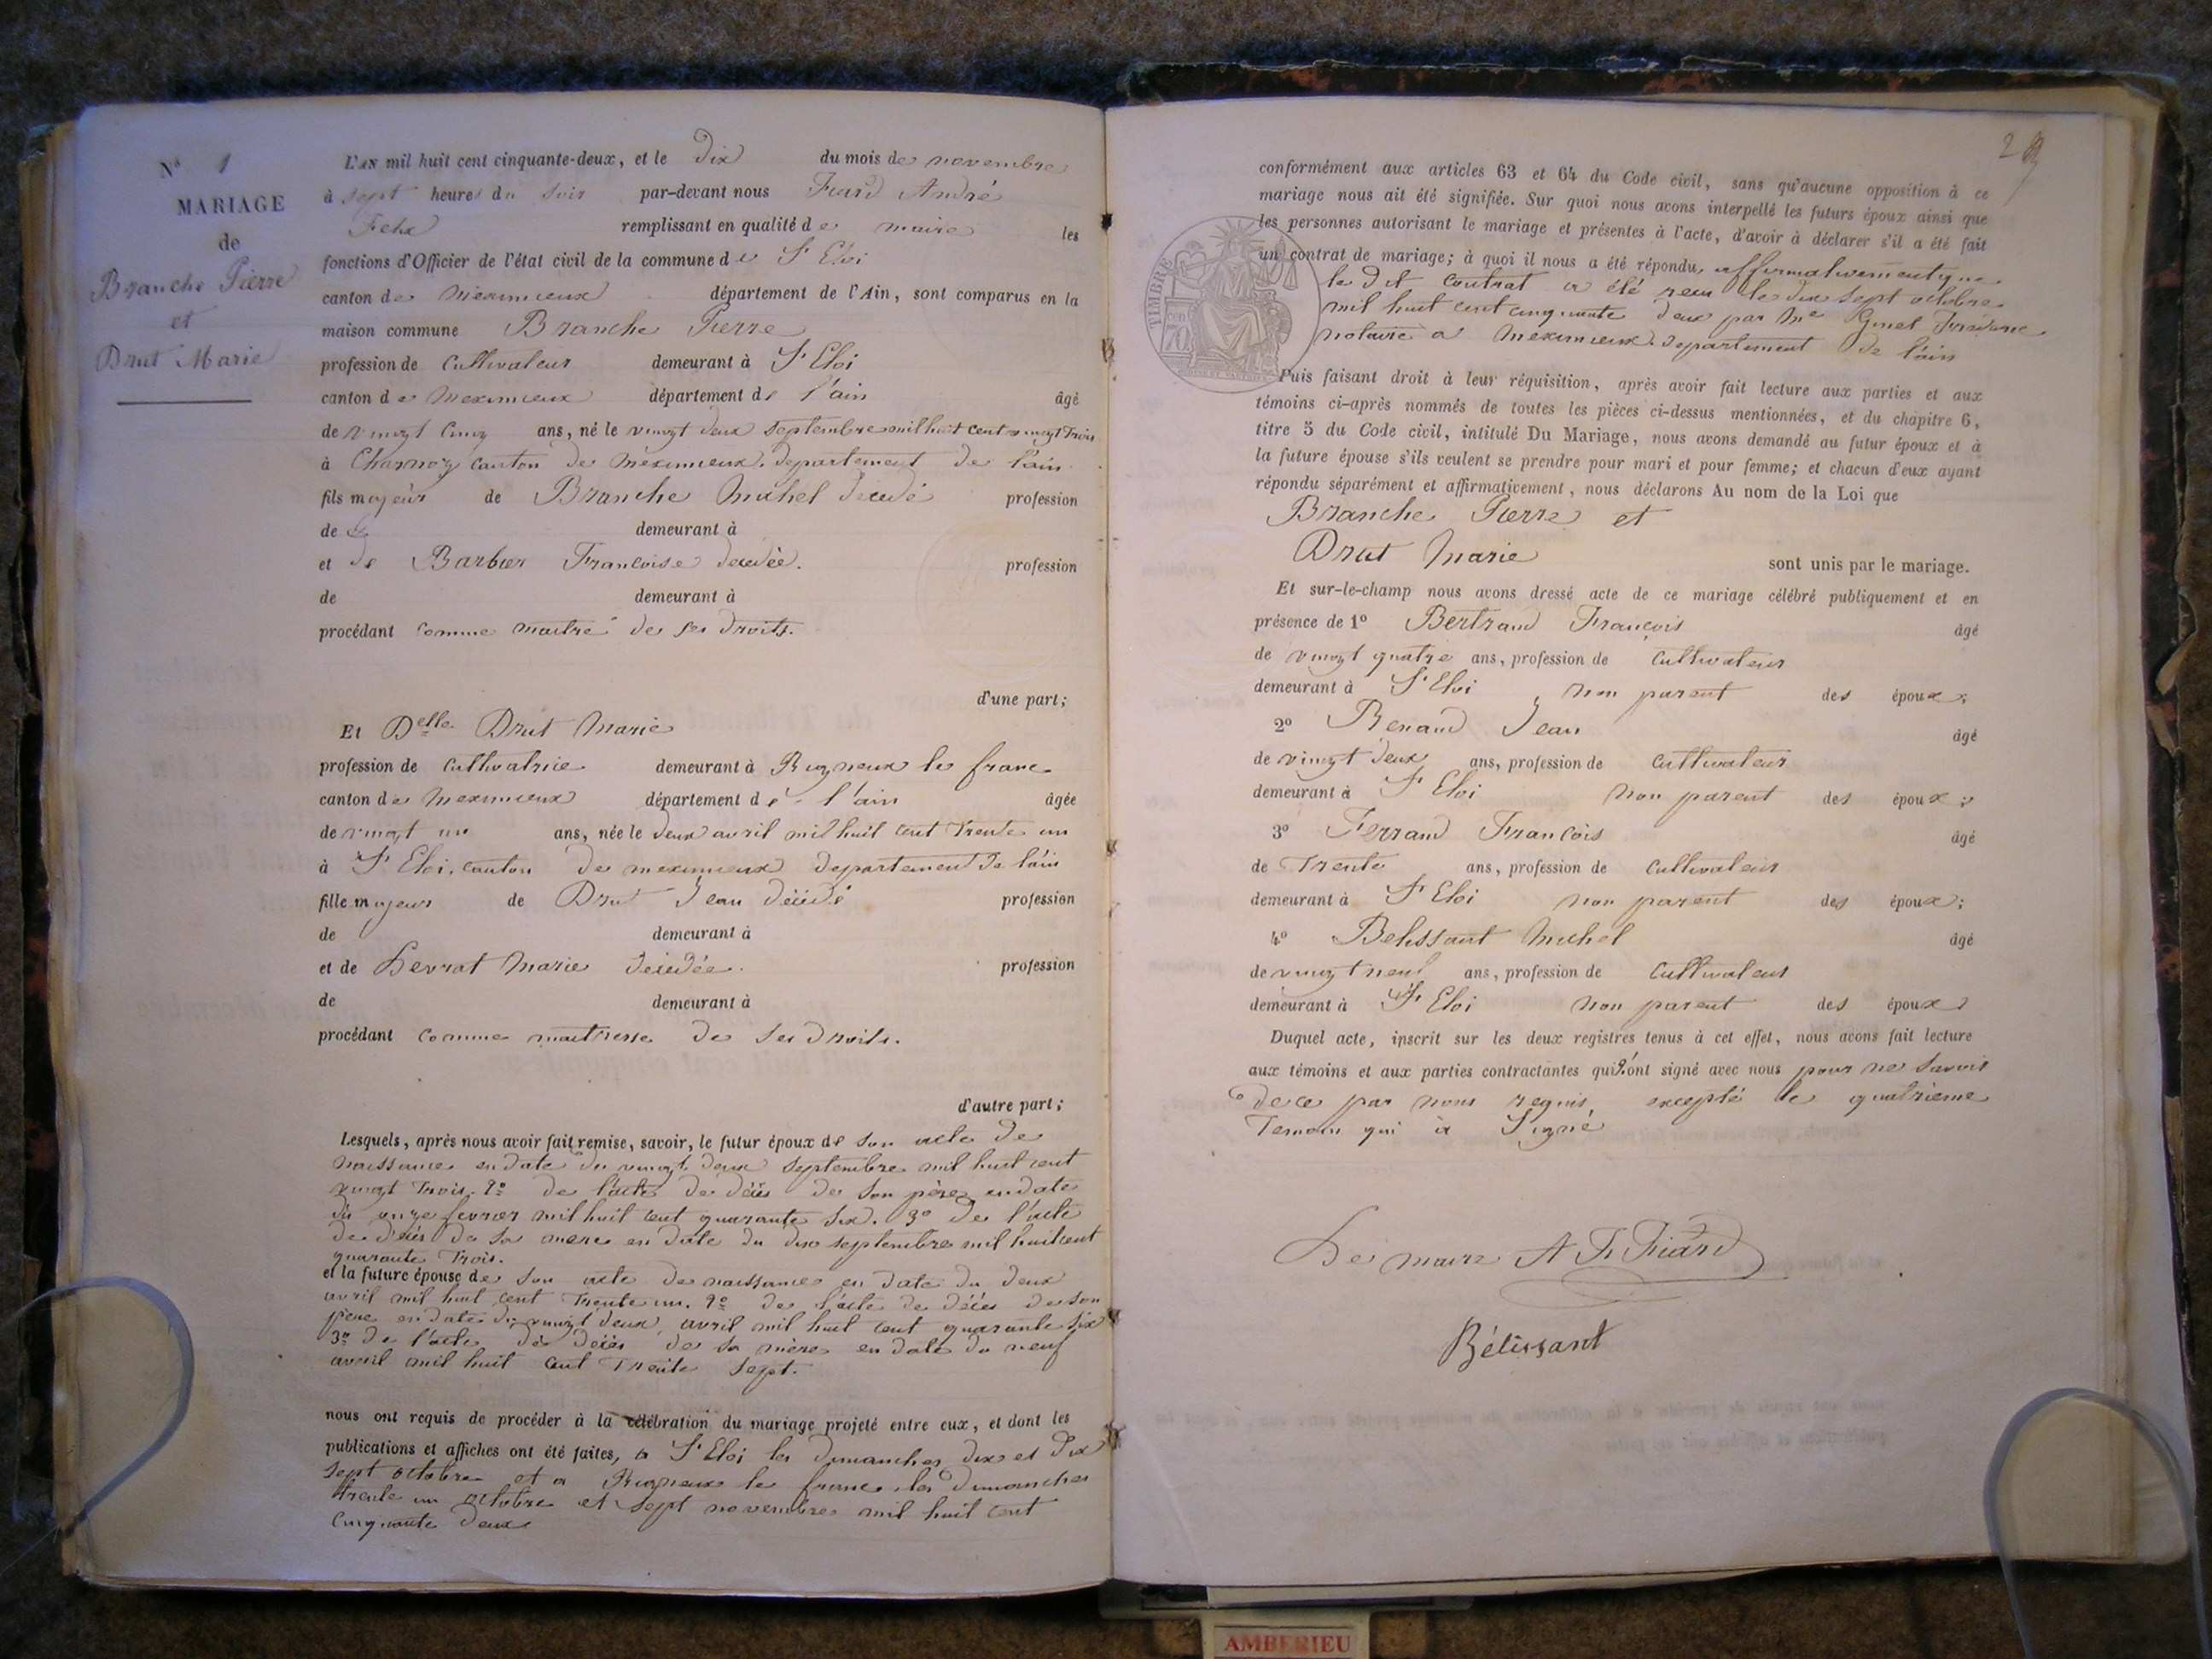 N° 1
MARIAGE
de
Branche Pierre
et
Drut Marie
L'AN mil huit cent cinquante-deux, et le dix du mois de novembre
à sept heures du soir par-devant nous André
Felix remplissant en qualité de maire les
fonctions d'Officier de l'état civil de la commune de St Eloi
canton de Meximieux département de l'Ain, sont comparus en la
maison commune Branche Pierre
profession de Cultivateur demeurant à St Eloi
canton de Meximieux département de l'ain âgé
de vingt cinq ans, né le vingt deux septembre mil huit cent vingt trois
à Charnoz canton de Meximieux. departement de l'ain
fils majeur de Branche Michel décédé profession
de demeurant à
et de Barbier Francoise décédée. profession
de demeurant à
procédant comme maitre de ses droits.
d'une part;
Et Delle Drut Marie
profession de Cultivatrice demeurant à Rigneux le franc
canton de Meximieux département de l'ain âgée
de vingt un ans, née le deux avril mil huit cent trente un
à St Eloi, canton de meximieux departement de l'ain
fille majeur de Drut Jean décédé profession
de demeurant à
et de Levrat Marie décédée. profession
de demeurant à
procédant comme maitresse de ses droits.
d'autre part;
Lesquels, après nous avoir fait remise, savoir, le futur époux de son acte de
naissance en date du vingt deux septembre mil huit cent
vingt trois. 2° de l'acte de décès de son père en date
du onze fevrier mil huit cent quarante six. 3° de l'acte
de décès de sa mere en date du dix septembre mil huit cent
quarante trois.
et la future épouse de son acte de naissance en date du deux
avril mil huit cent trente un. 2° de l'acte de décès de son
pere en date du vingt deux avril mil huit cent quarante six
3° de l'acte de décès de sa mère en date du neuf
avril mil huit cent trente sept.
nous ont requis de procéder à la célébration du mariage projeté entre eux, et dont les
publications et affiches ont été faites, à St Eloi les dimanches dix et dix
sept octobre et a Rigneux le franc les dimanches
trente un octobre et sept novembre mil huit cent
cinquante deux
conformément aux articles 63 et 64 du Code civil, sans qu'aucune opposition à ce
mariage nous ait été signifiée. Sur quoi nous avons interpellé les futurs époux ainsi que
les personnes autorisant le mariage et présentes à l'acte, d'avoir à déclarer s'il a été fait
un contrat de mariage; à quoi il nous a été répondu, affirmativement que
le dit contrat a été recu le dix sept octobre
mil huit cent cinquante deux par Me
notaire a Meximieux departement de l'ain
TIMBRE
Puis faisant droit à leur réquisition, après avoir fait lecture aux parties et aux
témoins ci-après nommés de toutes les pièces ci-dessus mentionnées, et du chapitre 6,
titre 5 du Code civil, intitulé Du Mariage, nous avons demandé au futur époux et à
la future épouse s'ils veulent se prendre pour mari et pour femme; et chacun d'eux ayant
répondu séparément et affirmativement, nous déclarons Au nom de la Loi que
Branche Pierre et
Drut Marie sont unis par le mariage.
Et sur-le-champ nous avons dressé acte de ce mariage célébré publiquement et en
présence de 1° Bertrand François âgé
de vingt quatre ans, profession de Cultivateur
demeurant à St Eloi non parent des époux;
2° Renaud Jean âgé
de vingt deux ans, profession de Cultivateur
demeurant à St Eloi non parent des époux;
3° Ferrand François âgé
de trente ans, profession de Cultivateur
demeurant à St Eloi non parent des époux;
4° Belissant Michel âgé
de vingt neuf ans, profession de Cultivateur
demeurant à St Eloi non parent des époux
Duquel acte, inscrit sur les deux registres tenus à cet effet, nous avons fait lecture
aux témoins et aux parties contractantes qui n'ont signé avec nous pour ne savoir
de ce par nous requis, excepté le quatrième
Temoin qui a Signé
Le maire
Bélissant
AMBERIEU